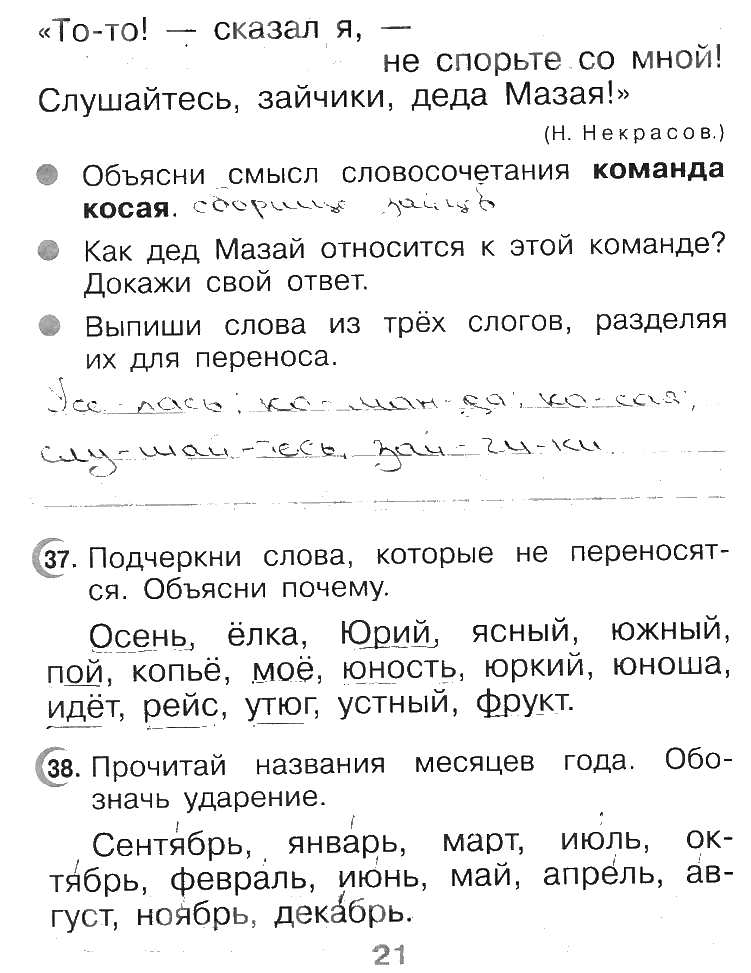 «То-то! — сказал я, —
не спорьте со мной!
Слушайтесь, зайчики, деда Мазая!»
(Н. Некрасов.)
Объясни смысл словосочетания команда
косая. сборище зайцев
Как дед Мазай относится к этой команде?
Докажи свой ответ.
Выпиши слова из трёх слогов, разделяя
их для переноса.
Усе-лась; ко-ман-да; ко-сая;
слу-шай-тесь, зай-чи-ки
37. Подчеркни слова, которые не переносят-
ся. Объясни почему.
Осень, ёлка, Юрий, ясный, южный,
пой, копьё, моё, юность, юркий, юноша,
идёт, рейс, утюг, устный, фрукт.
38. Прочитай названия месяцев года. Обо-
значь ударение.
Сентя́брь, янва́рь, март, ию́ль, ок-
тя́брь, февра́ль, ию́нь, май, апре́ль, а́в-
густ, ноя́брь, дека́брь.
21